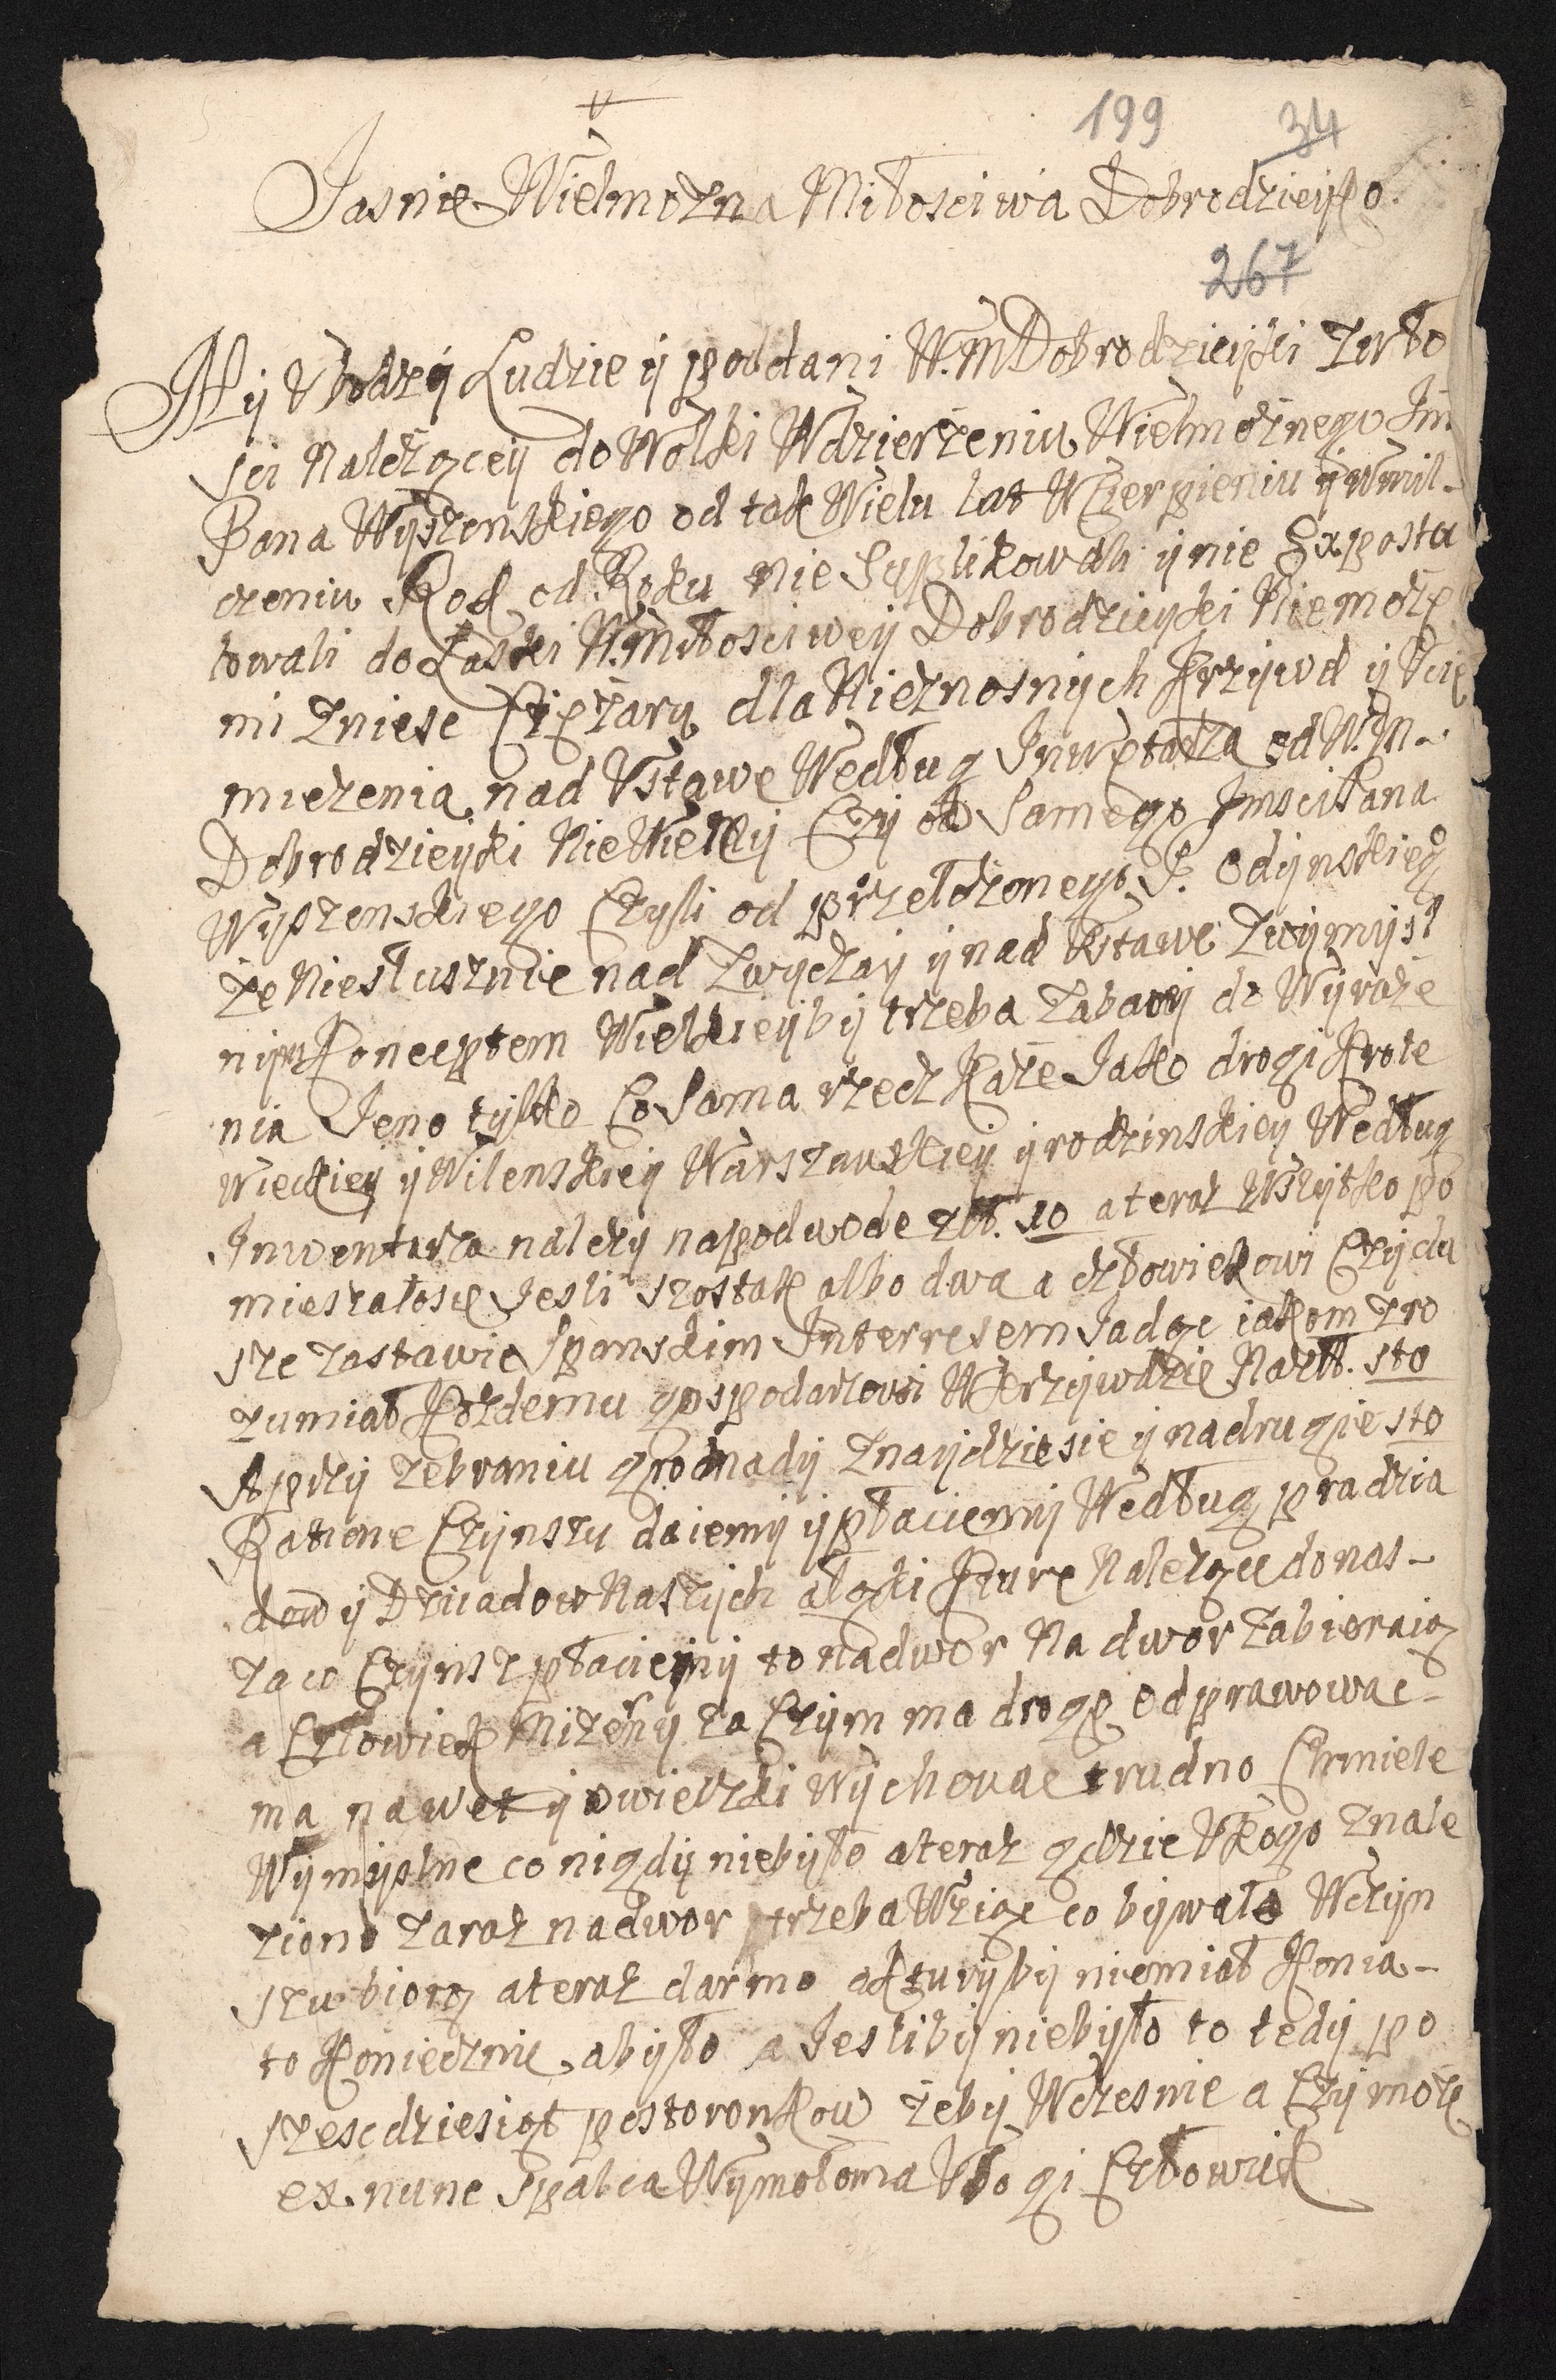 199 34
Jasnie Wielmozna Miłosciwa Dobrodzieyko.
267
My Vbodzy Ludzie y poddani W.M Dobrodzieyki zwło
sci Nalezącey do Wolki Wdzierzeniu Wielmożnego Jm
Pana Wyszenskiego od tak Wielu lat W Cierpieniu y wmil-
czeniu Rok od Roku nie Suplikowali y nie Exposta
lowali do Łaski W.Miłosciwey Dobrodzieyki Niemoże
mi zniesc Ciężaru dla Nieznosnych Krzywd y Vcie
miezenia nad Vstawę Według Inwetarza od W.M-
Dobrodzieyki Nie Wiemy Czy od Samego Jmsci Pana
Wyszenskiego Czyli od przełożonego P. Odynskiego
że Niesłusznie nad zwyczay y nad Vstawe zwymysl
nym Konceptem Wielkieyby trzeba zabawy do Wyraże
nia Jeno tylko Co Sama rzecz Każe Jako drogi Krole
wieckiey y Wilenskiey Warszawskiey y rodzinskiey Według
Inwentarza należy napodwode złł. 10 a teraz Wszytko po
mieszałosie Jesli szostak albo dwa a człowiekowi Czy du
sze zastawie Spanskim Interresem Jadąc iakom zro
zumiał Kożdemu gospodarzowi W Krzywdzie Na złł. sto
A przy zebraniu gromady znaydzie sie y nadrugie sto
Ratione Czynszu daiemy y płaciemy Według pradzia
dow y Dziadow Naszych a łąki Kture Należące donas-
za co Czynsz płaciemy to nadwor Na dwor zabieraią
a Człowiek Mizerny za Czym ma drogę odprawowac-
ma nawet y owieczki Wychowac trudno Chmiele
Wymyslne co nigdy niebyło a teraz gdzie Vkogo znale
ziono zaraz nadwor trzeba Wziąc co bywało Wczyn
szu biorą a teraz darmo a Kturyby niemiał Konia-
to Koniecznie abyło a Jesliby niebyło to tedy po
szescdziesiąt postoronkow żeby Wczesnie a Czy może
ex nunc Spalca Wymołoma Vbogi Człowiek